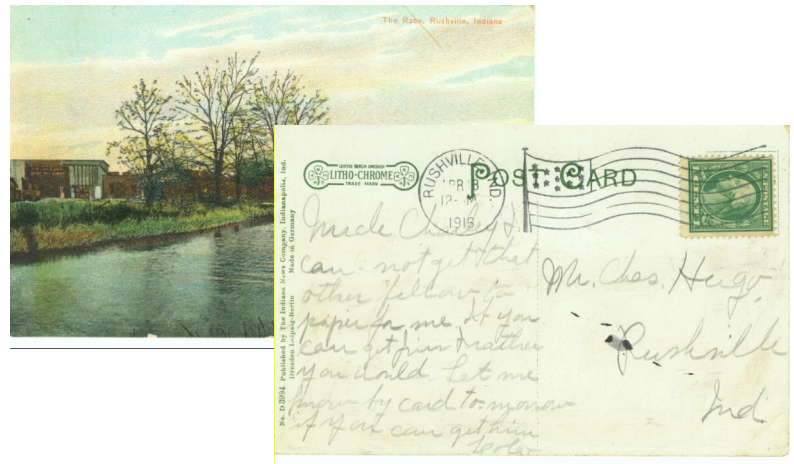 The Race, Rushville, Indiana
UNITED BERLIN DRESDEN
LITHO-CHROME
TRADE MARK
POST CARD
RUSHVILLE IND.
APR 8
12-
1916
U.S. POSTAGE
1 CENT 1
No. D 3994 Published by The Indiana News Company, Indianapolis, Ind.
Dresden Leipzig-Berlin Made in Germany
Uncle Charley I
can not get that
other fellow to
paper for me. If you
can get him I rather
you would. Let me
know by card to-morrow
if you can get him
Mr. Chas. Hugo,
Rushville
Ind